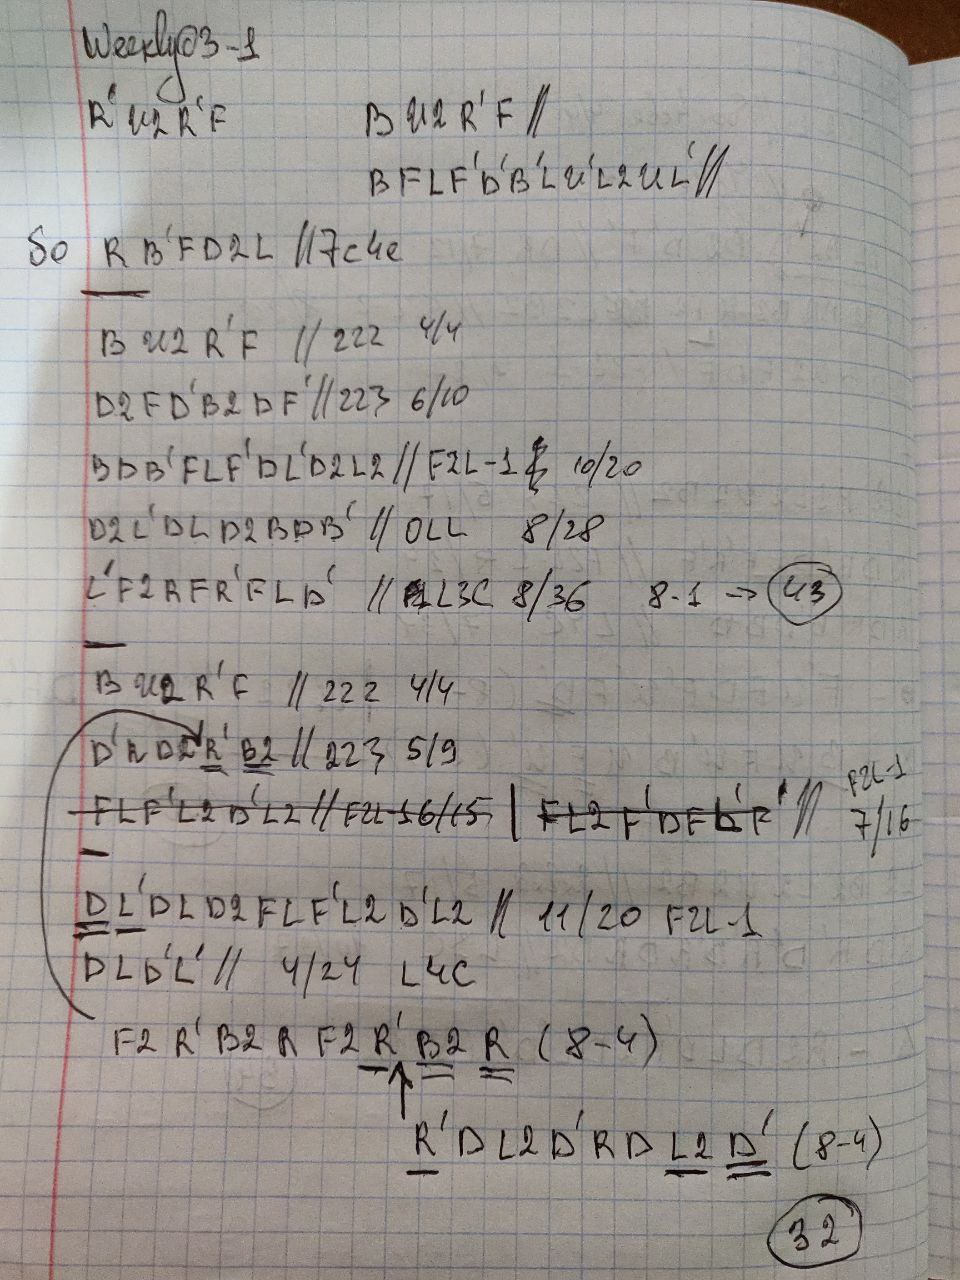 Weekly@3-1
R' U2 R' F
B U2 R' F //
B F L F' D' B' L U' L2 U L' //
So R B' F D2 L // 7c4e
B U2 R' F // 222 4/4
D2 F D' B2 D F' // 223 6/10
B D B' F L F' D L' D2 L2 // F2L-1 10/20
D2 L' D L D2 B D B' // OLL 8/28
L' F2 R F R' F L D' // L3C 8/36 8-1 → 43
B U2 R' F // 222 4/4
D' R D2 R' B2 // 223 5/9
F L F' L2 D' L2 // F2L-1 6/15 | F L2 F' D F L' F' // F2L-1 7/16
D L' D L D2 F L F' L2 D' L2 // 11/20 F2L-1
D L D' L' // 4/24 L4C
F2 R' B2 R F2 R' B2 R (8-4)
R' D L2 D' R D L2 D' (8-4)
32